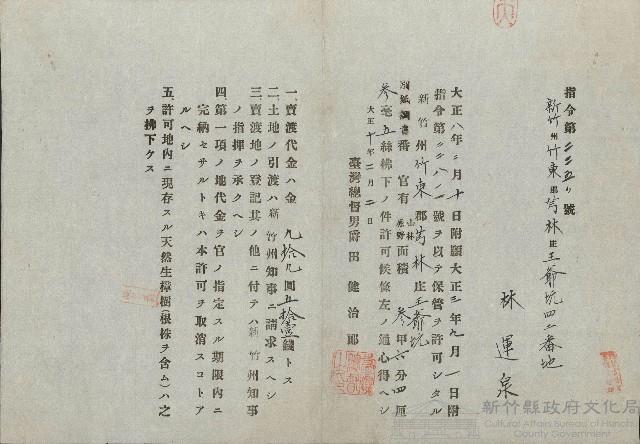 指令第二二五り號
新竹州竹東郡芎林庄王爺坑四二番地
林運泉
大正八年二月十日附願大正三年九月一日附
指令第二二八一號ヲ以テ保管ヲ許可シタル
新竹州竹東郡芎林庄王爺坑
別紙調書番官有山林原野面積參甲六分四厘
參毫五絲拂下ノ件許可候條左ノ通心得ヘシ
大正十年二月二日
臺灣總督男爵田健治郎
一、賣渡代金ハ金九拾九圓五拾壹錢トス
二、土地ノ引渡ハ新竹州知事ニ請求スヘシ
三、賣渡地ノ登記其ノ他ニ付テハ新竹州知事
ノ指揮ヲ承クヘシ
四、第一項ノ地代金ヲ官ノ指定スル期限內ニ
完納セサルトキハ本許可ヲ取消スコトア
ルヘシ
五、許可地內ニ現存スル天然生樟樹(根株ヲ含ム)ハ之
ヲ拂下ケス
新竹縣政府文化局
Cultural Affairs Bureau of Hsinchu
County Government